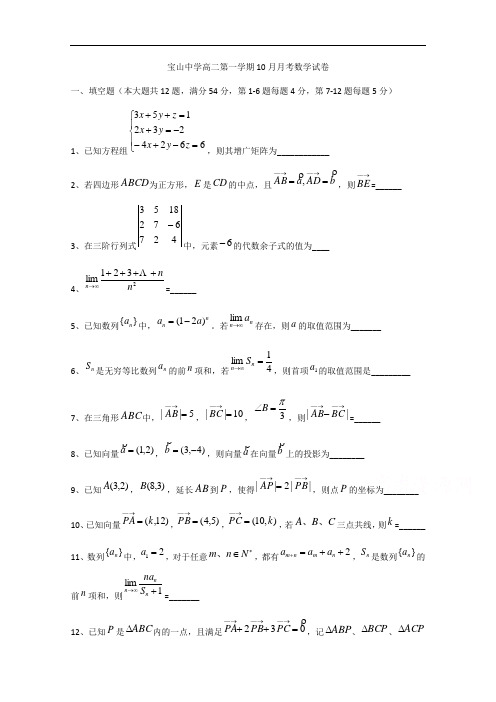 宝山中学高二第一学期10月月考数学试卷
一、填空题（本大题共12题，满分54分，第1-6题每题4分，第7-12题每题5分）
1、已知方程组 { 3x + 5y + z = 1
2x + 3y = −2
−4x + 2y − 6z = 6 ，则其增广矩阵为____________
2、若四边形ABCD为正方形，E是CD的中点，且AB→ = a, AD→ = b，则BE→=______
3、在三阶行列式 | 3 5 18
2 7 −6
7 2 4 | 中，元素−6的代数余子式的值为____
4、lim n→∞ (1 + 2 + 3 + Λ + n)/n² =______
5、已知数列{aₙ}中，aₙ = (1−2a)ⁿ，若lim n→∞ aₙ存在，则a的取值范围为_______
6、Sₙ是无穷等比数列aₙ的前n项和，若lim n→∞ Sₙ = 1/4，则首项a₁的取值范围是_________
7、在三角形ABC中，|AB→|= 5，|BC→|= 10，∠B = π/3，则|AB→ − BC→|=______
8、已知向量a = (1,2)，b = (3,−4)，则向量a在向量b上的投影为________
9、已知A(3,2)，B(8,3)，延长AB到P，使得|AP→|= 2|PB→|，则点P的坐标为________
10、已知向量PA→ = (k,12)，PB→ = (4,5)，PC→ = (10,k)，若A、B、C三点共线，则k=______
11、数列{aₙ}中，a₁ = 2，对于任意m、n∈N*，都有aₘ₊ₙ = aₘ + aₙ + 2，Sₙ是数列{aₙ}的
前n项和，则lim n→∞ naₙ/(Sₙ + 1)=_______
12、已知P是ΔABC内的一点，且满足PA→ + 2PB→ + 3PC→ = 0，记ΔABP、ΔBCP、ΔACP